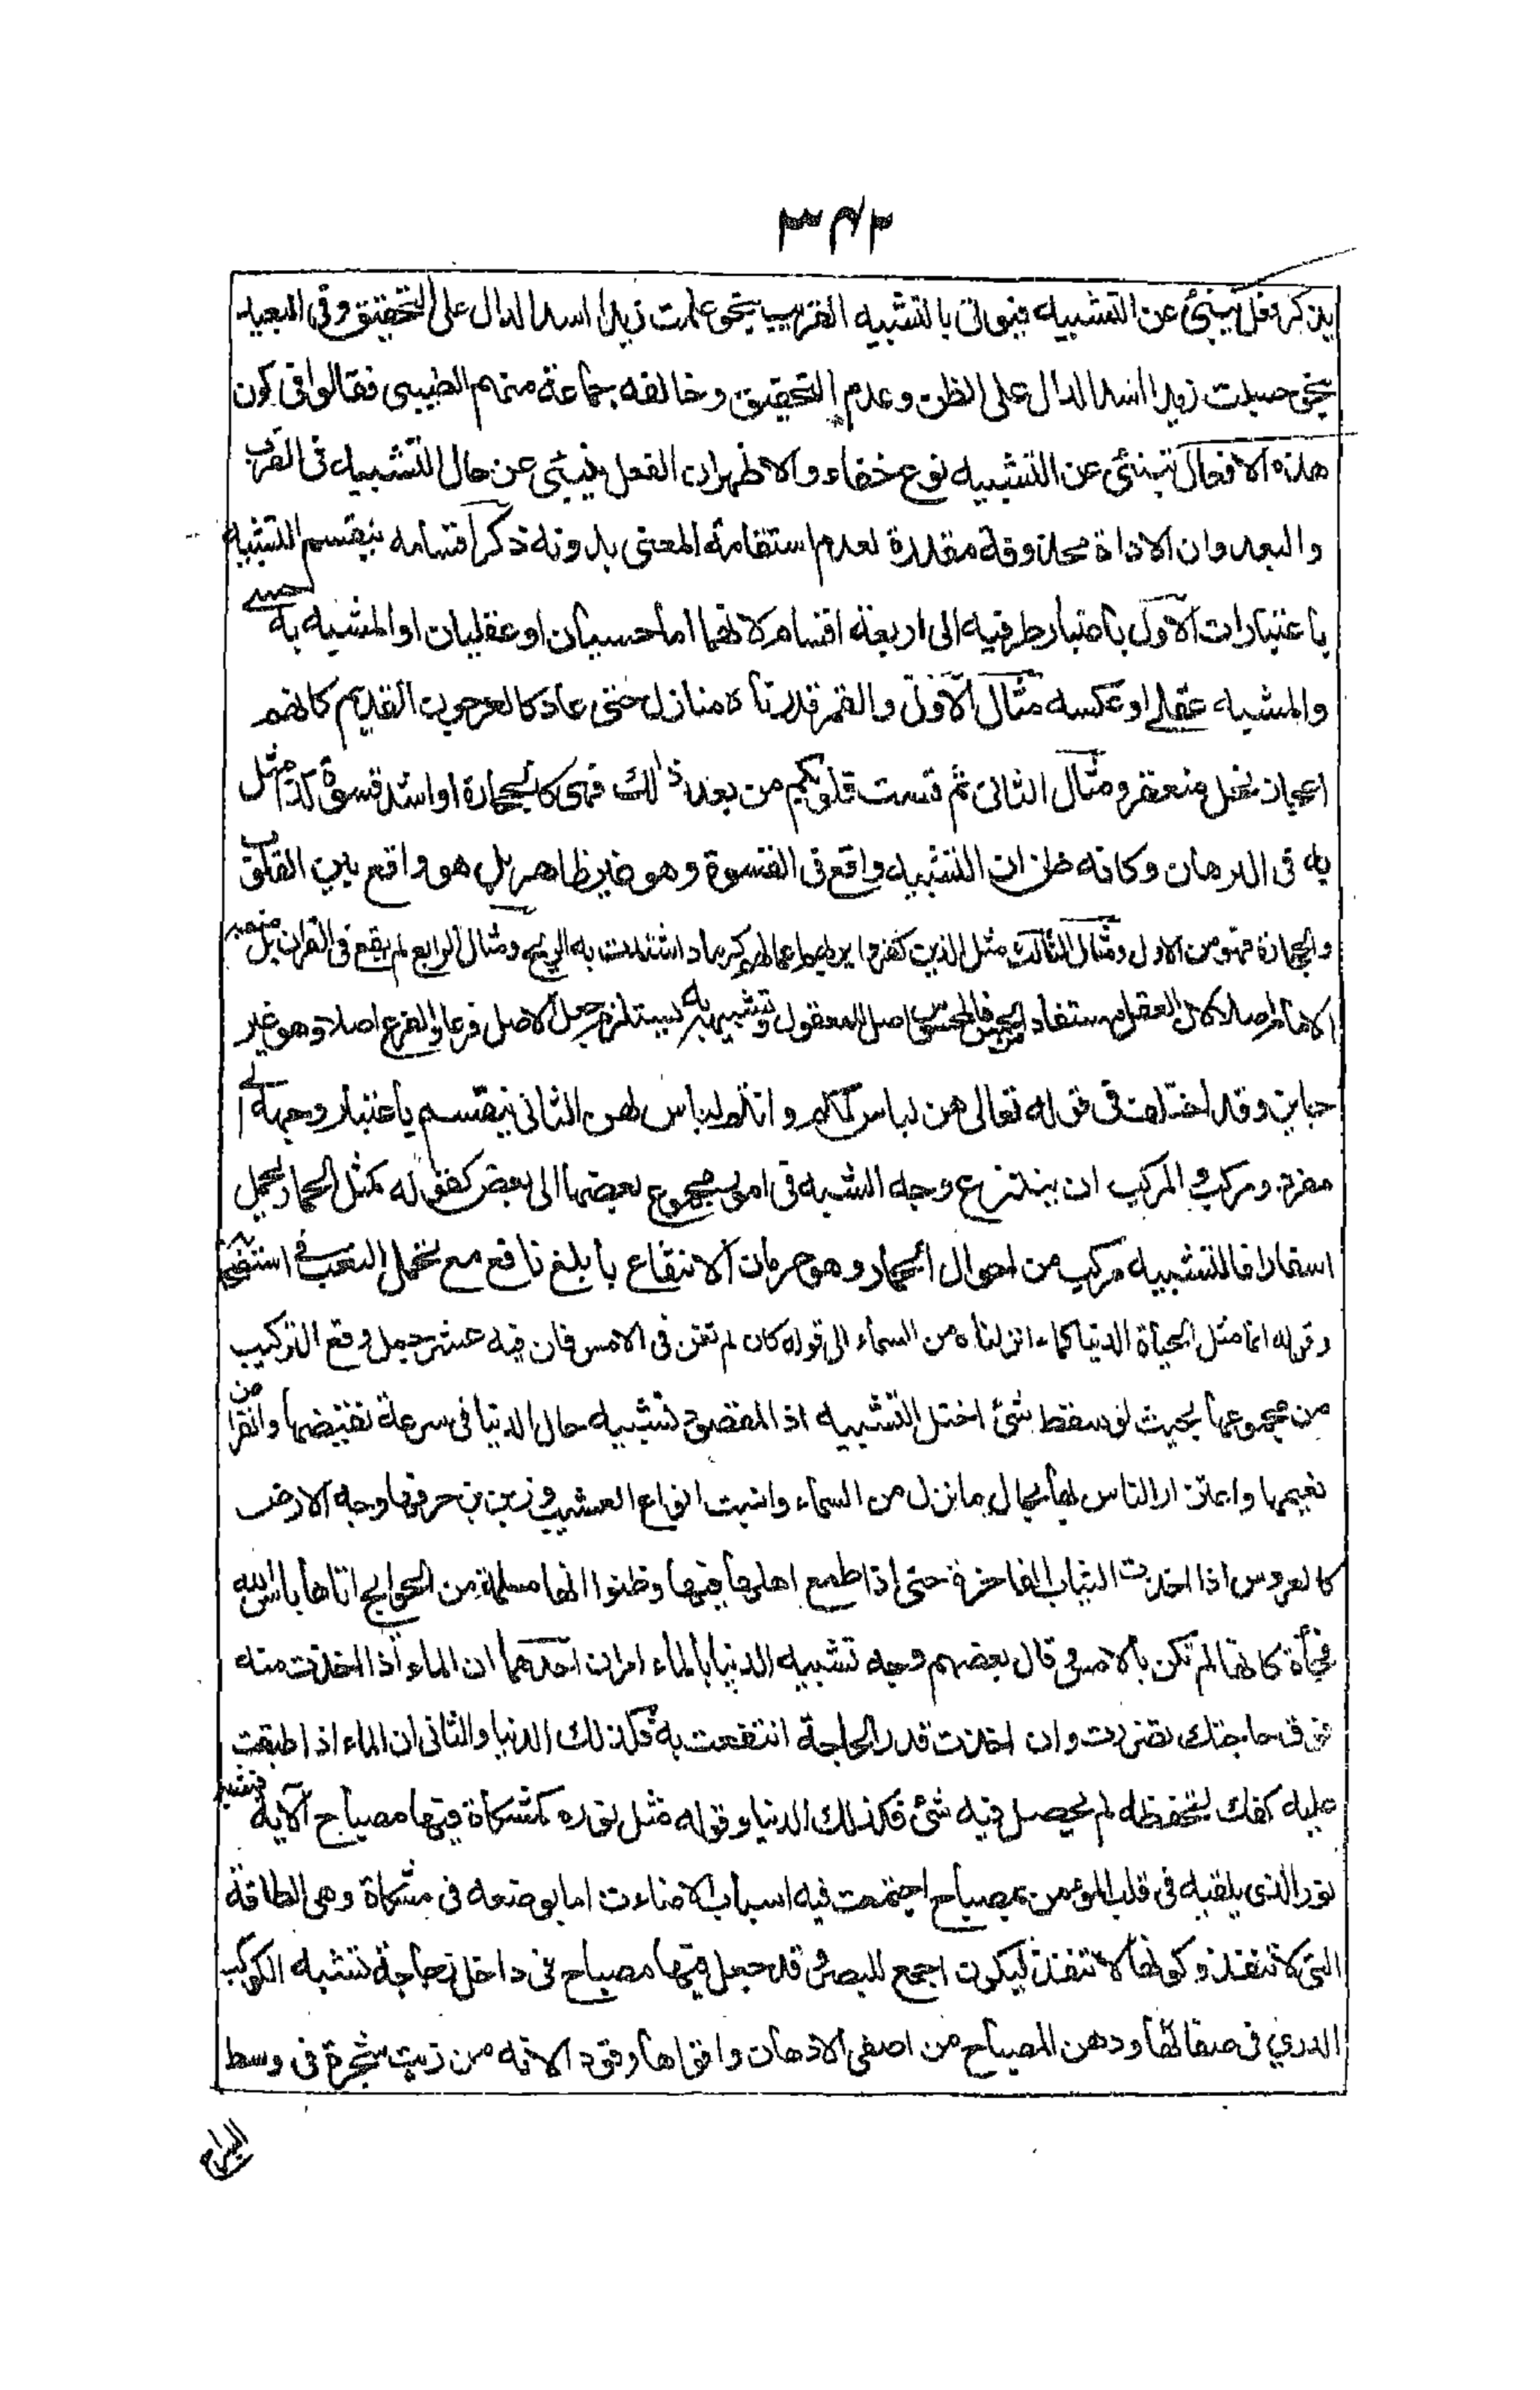 ٣٤٢
يذكر فعل ينبئ عن التشبيه فيوتى بالتشبيه القريب بنحو علمت زيدا اسدا الدال على التحقيق وفى البعيد
بنحو حسبت زيدا اسدا الدال على الظن وعدم التحقيق وخالفه جماعة منهم الطيبى فقالوا فى كون
هذه الافعال تنبئ عن التشبيه نوع خفاء والاظهر ان الفعل ينبئ عن حال التشبيه فى القرب
والبعد وان الاداة محذوفة مقدرة لعدم استقامة المعنى بدونه ذكر اقسامه ينقسم التشبيه
باعتبارات الاول باعتبار طرفيه الى اربعة اقسام لانهما اما حسيان او عقليان او المشبه به حسي
والمشبه عقلي او عكسه مثال الاول والقمر قدرناه منازل حتى عاد كالعرجون القديم كانهم
اعجاز نخل منقعر ومثال الثانى ثم قست قلوبكم من بعد ذلك فهى كالحجارة او اشد قسوة كذا مثل
به فى البرهان وكانه ظن ان التشبيه واقع فى القسوة وهو غير ظاهر بل هو واقع بين القلوب
والحجارة فهو من الاول ومثال الثالث مثل الذين كفروا بربهم اعمالهم كرماد اشتدت به الريح ومثال الرابع لم يقع فى القران بل منعه
الامام اصلا لان العقل مستفاد من الحس فالمحسوس اصل للمعقول وتشبيهه به يستلزم جعل الاصل فرعا والفرع اصلا وهو غير
جايز وقد اختلف فى قوله تعالى هن لباس لكم وانتم لباس لهن الثانى ينقسم باعتبار وجهه الى
مفرد ومركب والمركب ان ينتزع وجه الشبه فى امور مجموع بعضها الى بعض كقوله كمثل الحمار يحمل
اسفارا فالتشبيه مركب من احوال الحمار وهو حرمان الانتفاع بابلغ نافع مع تحمل التعب فى استصحابه
وقوله انما مثل الحياة الدنيا كماء انزلناه من السماء الى قوله كان لم تغن فى الامس فان فيه عشر جمل وقع التركيب
من مجموعها بحيث لو سقط شئ اختل التشبيه اذا المقصود تشبيه حال الدنيا فى سرعة تقضيها وانقراض
نعيمها واغترار الناس بها بحال ماء نزل من السماء وانبت انواع العشب وزين بزخرفها وجه الارض
كالعروس اذا اخذت الثياب الفاخرة حتى اذا طمع اهلها فيها وظنوا انها مسلمة من الجوايح اتاها باس الله
فجأة كانها لم تكن بالامس وقال بعضهم وجه تشبيه الدنيا بالماء امران احدهما ان الماء اذا اخذت منه
فوق حاجتك تضررت وان اخذت قدر الحاجة انتفعت به فكذلك الدنيا والثانى ان الماء اذا طبقت
عليه كفك لتحفظه لم يحصل فيه شئ فكذلك الدنيا وقوله مثل نوره كمشكاة فيها مصباح الآية فشبه
نور الذى يلقيه فى قلب المؤمن بمصباح اجتمعت فيه اسباب الاضاءة اما بوضعه فى مشكاة وهى الطاقة
التى لا تنفذ وكونها لا تنفذ ليكون اجمع للبصر وقد جعل فيها مصباح فى داخل زجاجة تشبه الكوكب
الدري فى صفائها ودهن المصباح من اصفى الادهان واقواها وقودا لانه من زيت شجرة فى وسط
السراج